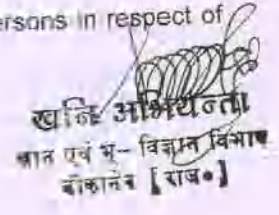 ersons in respect of
खनि अभियन्ता
खान एवं भू- विज्ञान विभाग
बीकानेर [राज०]